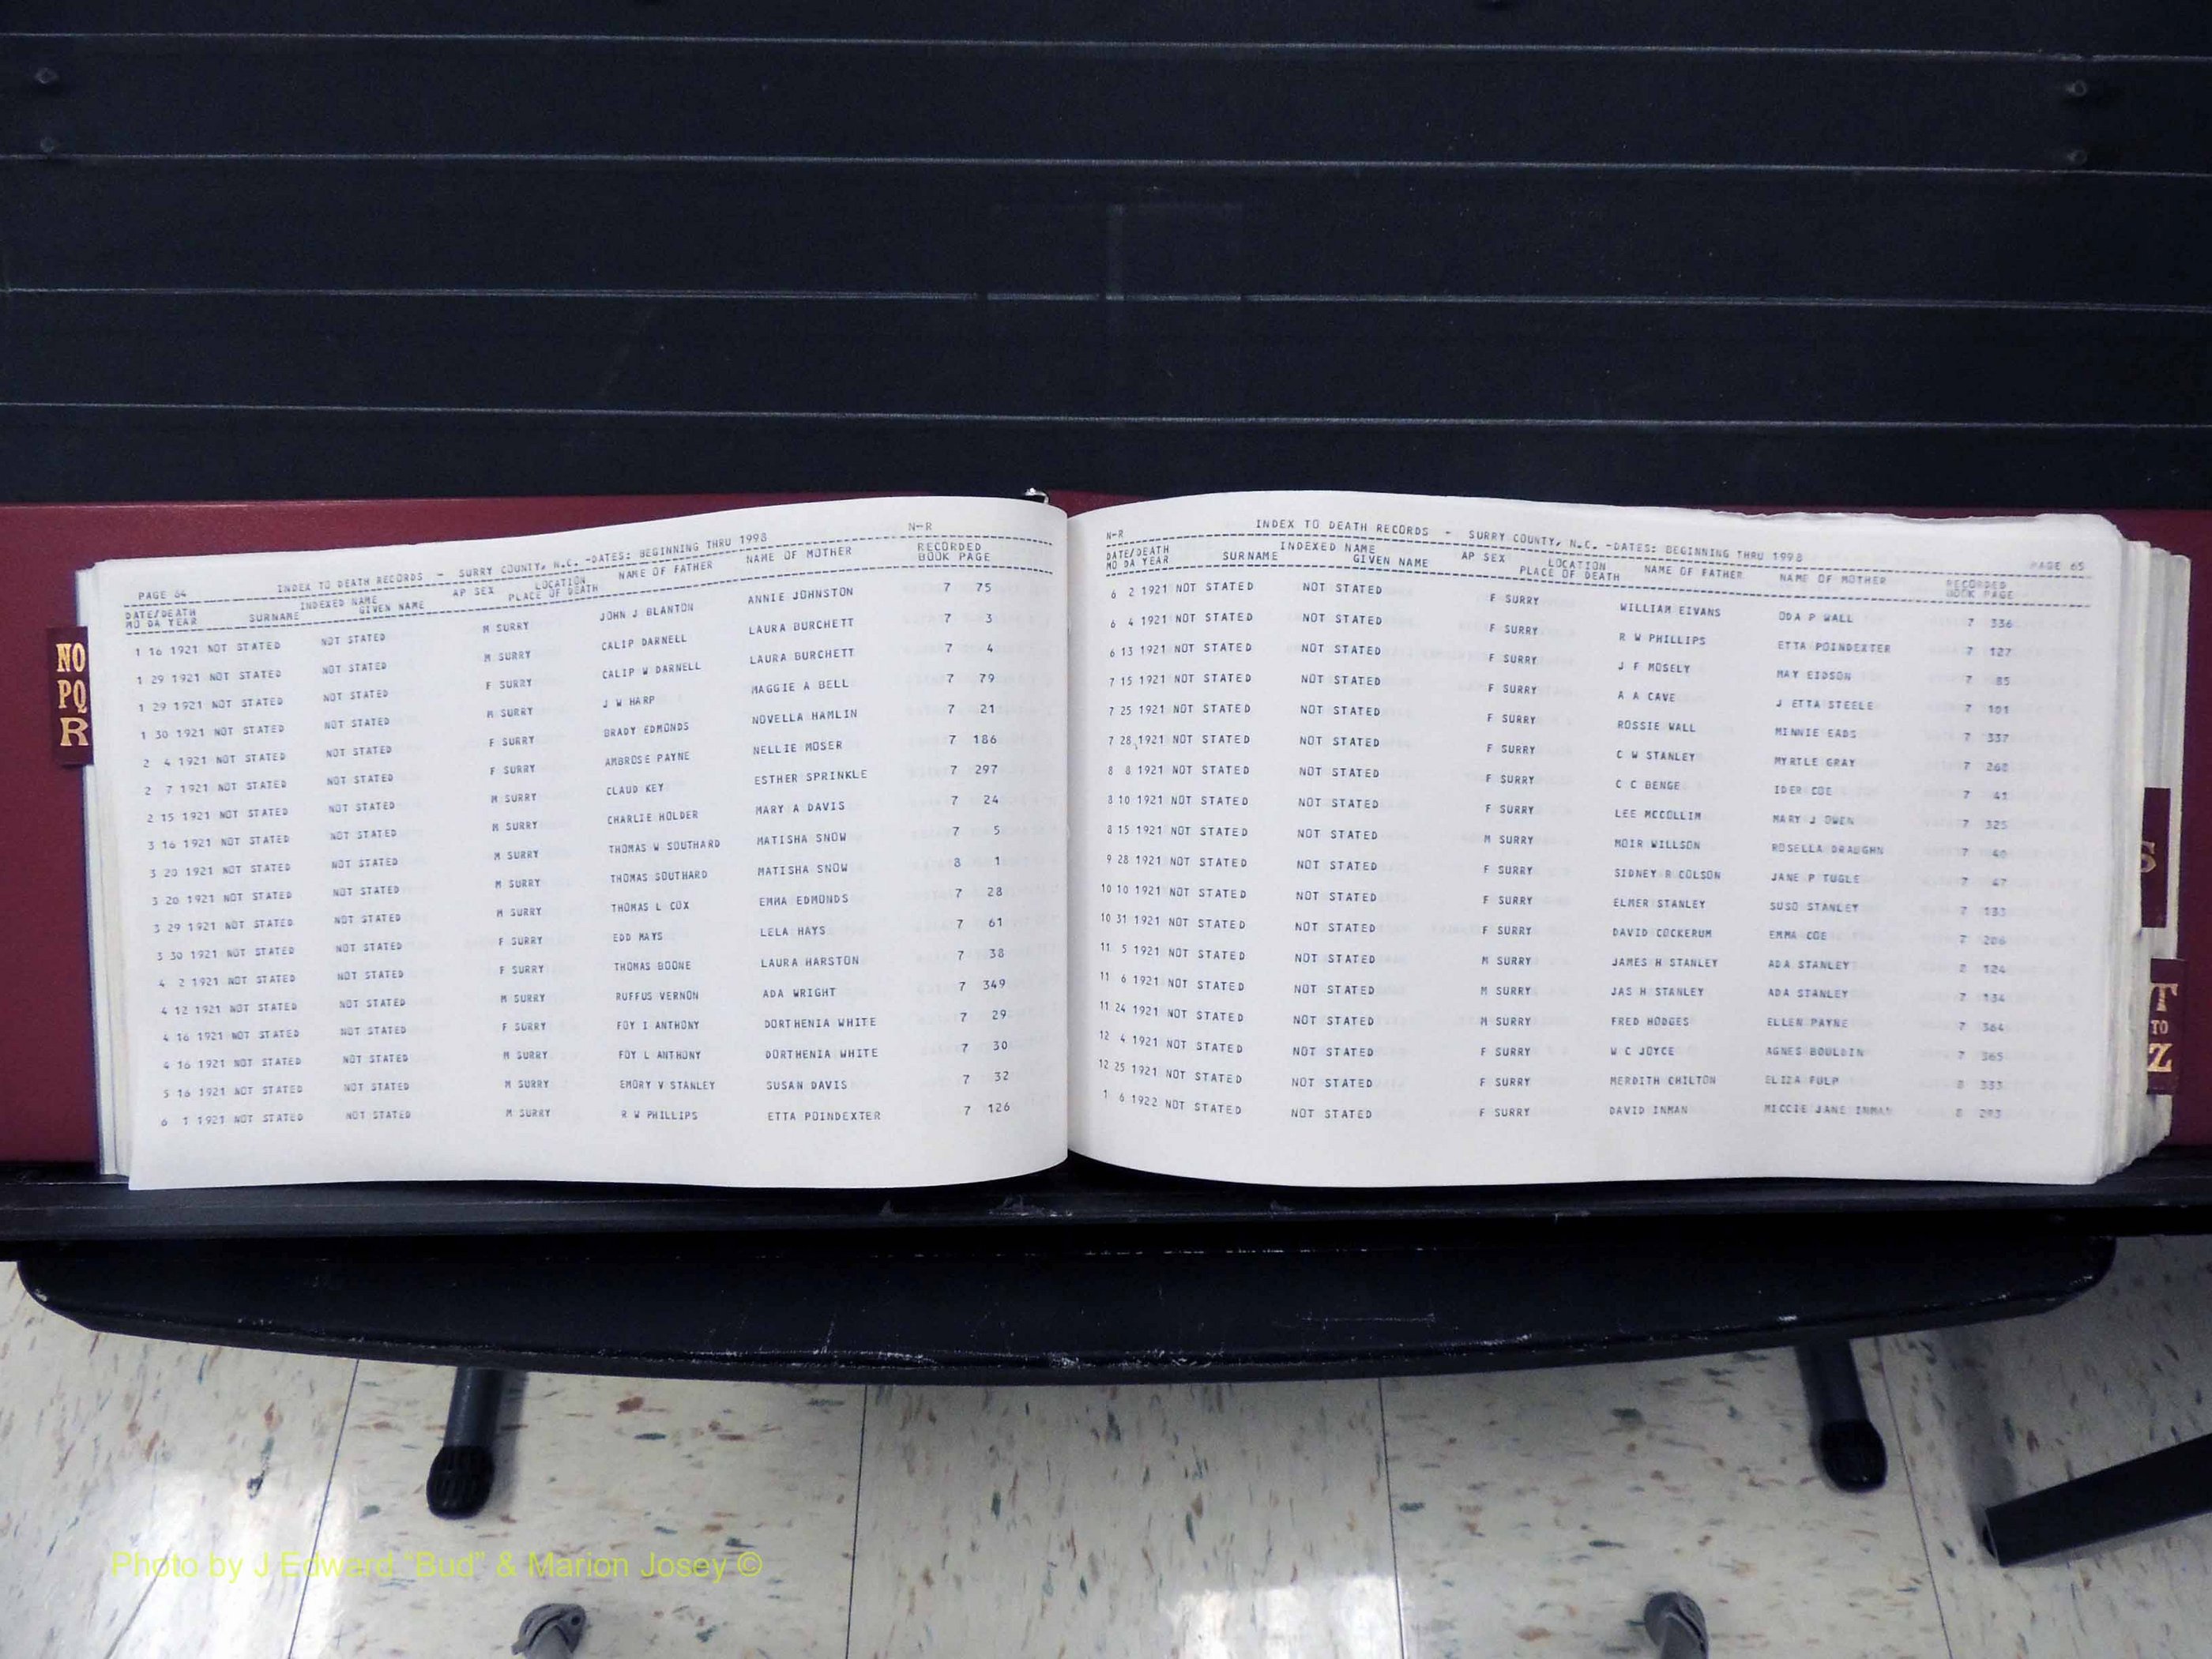 NO
PQ
R
PAGE 64 INDEX TO DEATH RECORDS - SURRY COUNTY, N.C. -DATES: BEGINNING THRU 1998 N-R
DATE/DEATH INDEXED NAME AP SEX LOCATION NAME OF FATHER NAME OF MOTHER RECORDED
MO DA YEAR SURNAME GIVEN NAME PLACE OF DEATH BOOK PAGE
1 16 1921 NOT STATED NOT STATED M SURRY JOHN J BLANTON ANNIE JOHNSTON 7 75
1 29 1921 NOT STATED NOT STATED M SURRY CALIP DARNELL LAURA BURCHETT 7 3
1 29 1921 NOT STATED NOT STATED F SURRY CALIP W DARNELL LAURA BURCHETT 7 4
1 30 1921 NOT STATED NOT STATED M SURRY J W HARP MAGGIE A BELL 7 79
2 4 1921 NOT STATED NOT STATED F SURRY BRADY EDMONDS NOVELLA HAMLIN 7 21
2 7 1921 NOT STATED NOT STATED F SURRY AMBROSE PAYNE NELLIE MOSER 7 186
2 15 1921 NOT STATED NOT STATED M SURRY CLAUD KEY ESTHER SPRINKLE 7 297
3 16 1921 NOT STATED NOT STATED M SURRY CHARLIE HOLDER MARY A DAVIS 7 24
3 20 1921 NOT STATED NOT STATED M SURRY THOMAS W SOUTHARD MATISHA SNOW 7 5
3 20 1921 NOT STATED NOT STATED M SURRY THOMAS SOUTHARD MATISHA SNOW 8 1
3 29 1921 NOT STATED NOT STATED M SURRY THOMAS L COX EMMA EDMONDS 7 28
3 30 1921 NOT STATED NOT STATED F SURRY EDD MAYS LELA HAYS 7 61
4 2 1921 NOT STATED NOT STATED F SURRY THOMAS BOONE LAURA HARSTON 7 38
4 12 1921 NOT STATED NOT STATED M SURRY RUFFUS VERNON ADA WRIGHT 7 349
4 16 1921 NOT STATED NOT STATED F SURRY FOY I ANTHONY DORTHENIA WHITE 7 29
4 16 1921 NOT STATED NOT STATED M SURRY FOY L ANTHONY DORTHENIA WHITE 7 30
5 16 1921 NOT STATED NOT STATED M SURRY EMORY V STANLEY SUSAN DAVIS 7 32
6 1 1921 NOT STATED NOT STATED M SURRY R W PHILLIPS ETTA POINDEXTER 7 126
N-R INDEX TO DEATH RECORDS - SURRY COUNTY, N.C. -DATES: BEGINNING THRU 1998 PAGE 65
DATE/DEATH INDEXED NAME AP SEX LOCATION NAME OF FATHER NAME OF MOTHER RECORDED
MO DA YEAR SURNAME GIVEN NAME PLACE OF DEATH BOOK PAGE
6 2 1921 NOT STATED NOT STATED F SURRY WILLIAM EIVANS ODA P WALL 7 336
6 4 1921 NOT STATED NOT STATED F SURRY R W PHILLIPS ETTA POINDEXTER 7 127
6 13 1921 NOT STATED NOT STATED F SURRY J F MOSELY MAY EIDSON 7 85
7 15 1921 NOT STATED NOT STATED F SURRY A A CAVE J ETTA STEELE 7 101
7 25 1921 NOT STATED NOT STATED F SURRY ROSSIE WALL MINNIE EADS 7 337
7 28 1921 NOT STATED NOT STATED F SURRY C W STANLEY MYRTLE GRAY 7
8 8 1921 NOT STATED NOT STATED F SURRY C C BENGE IDER COE 7 41
8 10 1921 NOT STATED NOT STATED F SURRY LEE MCCOLLIM MARY J OWEN 7 325
8 15 1921 NOT STATED NOT STATED M SURRY MOIR WILLSON ROSELLA DRAUGHN 7 40
9 28 1921 NOT STATED NOT STATED F SURRY SIDNEY R COLSON JANE P TUGLE 7 47
10 10 1921 NOT STATED NOT STATED F SURRY ELMER STANLEY SUSO STANLEY 7
10 31 1921 NOT STATED NOT STATED F SURRY DAVID COCKERUM EMMA COE 7 206
11 5 1921 NOT STATED NOT STATED M SURRY JAMES H STANLEY ADA STANLEY 8 124
11 6 1921 NOT STATED NOT STATED M SURRY JAS H STANLEY ADA STANLEY 7 134
11 24 1921 NOT STATED NOT STATED M SURRY FRED HODGES ELLEN PAYNE 7 364
12 4 1921 NOT STATED NOT STATED F SURRY W C JOYCE AGNES BOULDIN 7 365
12 25 1921 NOT STATED NOT STATED F SURRY MERDITH CHILTON ELIZA FULP 8 333
1 6 1922 NOT STATED NOT STATED F SURRY DAVID INMAN MICCIE JANE INMAN 8 293
S
T
TO
Z
Photo by J Edward “Bud” & Marion Josey ©